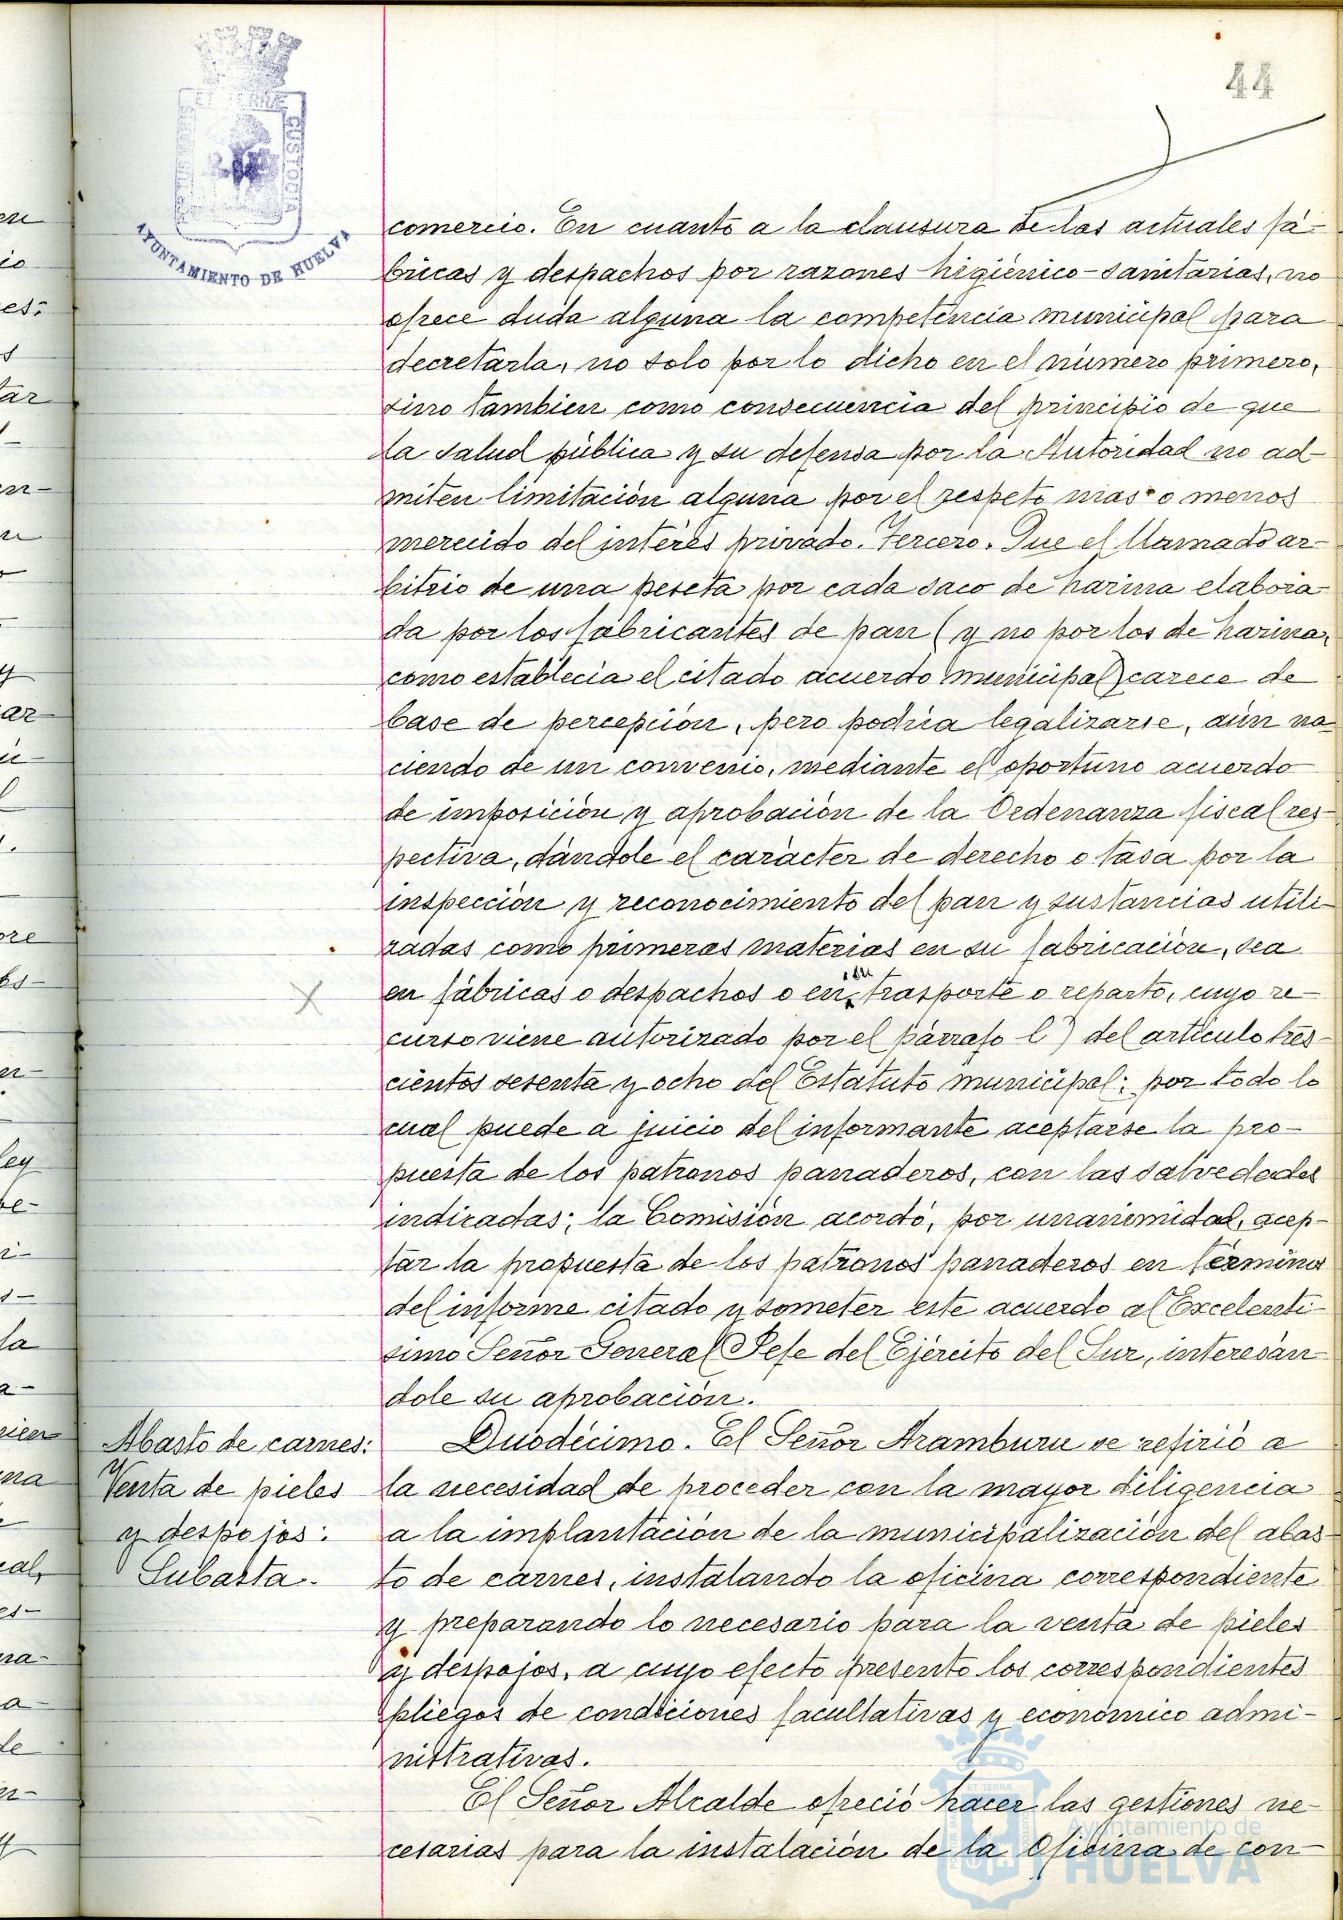 44
PORTUS MARIS
ET TERRÆ
CUSTODIA
AYUNTAMIENTO DE HUELVA
comercio. En cuanto a la clausura de las actuales fá-
bricas y despachos por razones higiénico-sanitarias, no
ofrece duda alguna la competencia municipal para
decretarla, no solo por lo dicho en el número primero,
sino tambien como consecuencia del principio de que
la salud pública y su defensa por la Autoridad no ad-
miten limitación alguna por el respeto mas o menos
merecido del interés privado. Tercero. Que el llamado ar-
bitrio de una peseta por cada saco de harina elabora-
da por los fabricantes de pan (y no por los de harina,
como establecía el citado acuerdo municipal) carece de
base de percepción, pero podría legalizarse, aún na-
ciendo de un convenio, mediante el oportuno acuerdo
de imposición y aprobación de la Ordenanza fiscal res-
pectiva, dándole el carácter de derecho o tasa por la
inspección y reconocimiento del pan y sustancias utili-
zadas como primeras materias en su fabricación, sea
en fábricas o despachos o en su trasporte o reparto, cuyo re-
curso viene autorizado por el párrafo l) del artículo tres-
cientos sesenta y ocho del Estatuto municipal; por todo lo
cual puede a juicio del informante aceptarse la pro-
puesta de los patronos panaderos, con las salvedades
indicadas; la Comisión acordó, por unanimidad, acep-
tar la propuesta de los patronos panaderos en términos
del informe citado y someter este acuerdo al Excelentí-
simo Señor General Jefe del Ejército del Sur, interesán-
dole su aprobación.
Abasto de carnes:
Venta de pieles
y despojos:
Subasta.
Duodécimo. El Señor Aramburu se refirió a
la necesidad de proceder con la mayor diligencia
a la implantación de la municipalización del abas-
to de carnes, instalando la oficina correspondiente
y preparando lo necesario para la venta de pieles
y despojos, a cuyo efecto presento los correspondientes
pliegos de condiciones facultativas y económico admi-
nistrativas.
El Señor Alcalde ofreció hacer las gestiones ne-
cesarias para la instalación de la Oficina de con-
Ayuntamiento de
HUELVA